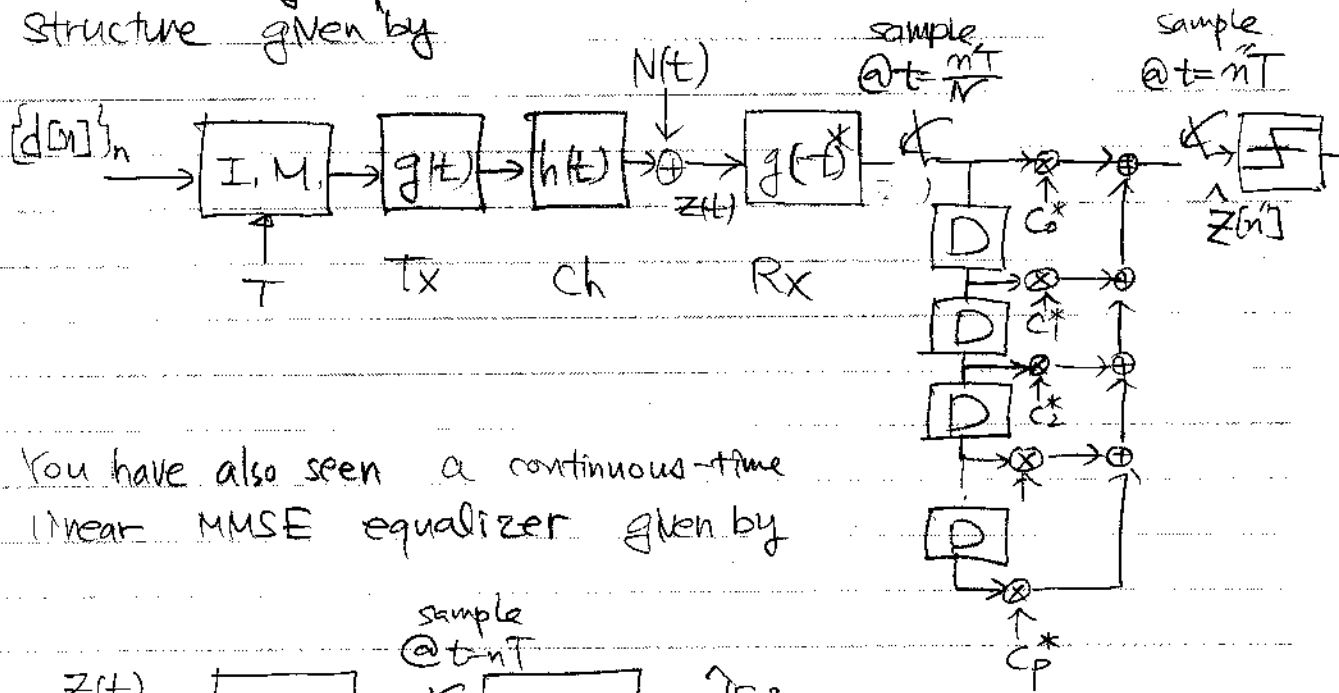 structure given by
sample
@ t = n'T/N
sample
@ t = n''T
N(t)
{d[n]}n
I. M.
g(t)
h(t)
⊕
g(-t)*
z(t)
Ẑ[n'']
T
Tx
Ch
Rx
D
C0*
D
C1*
D
C2*
D
Cp*
You have also seen a continuous-time
linear MMSE equalizer given by
sample
@ t=nT
Z(t)